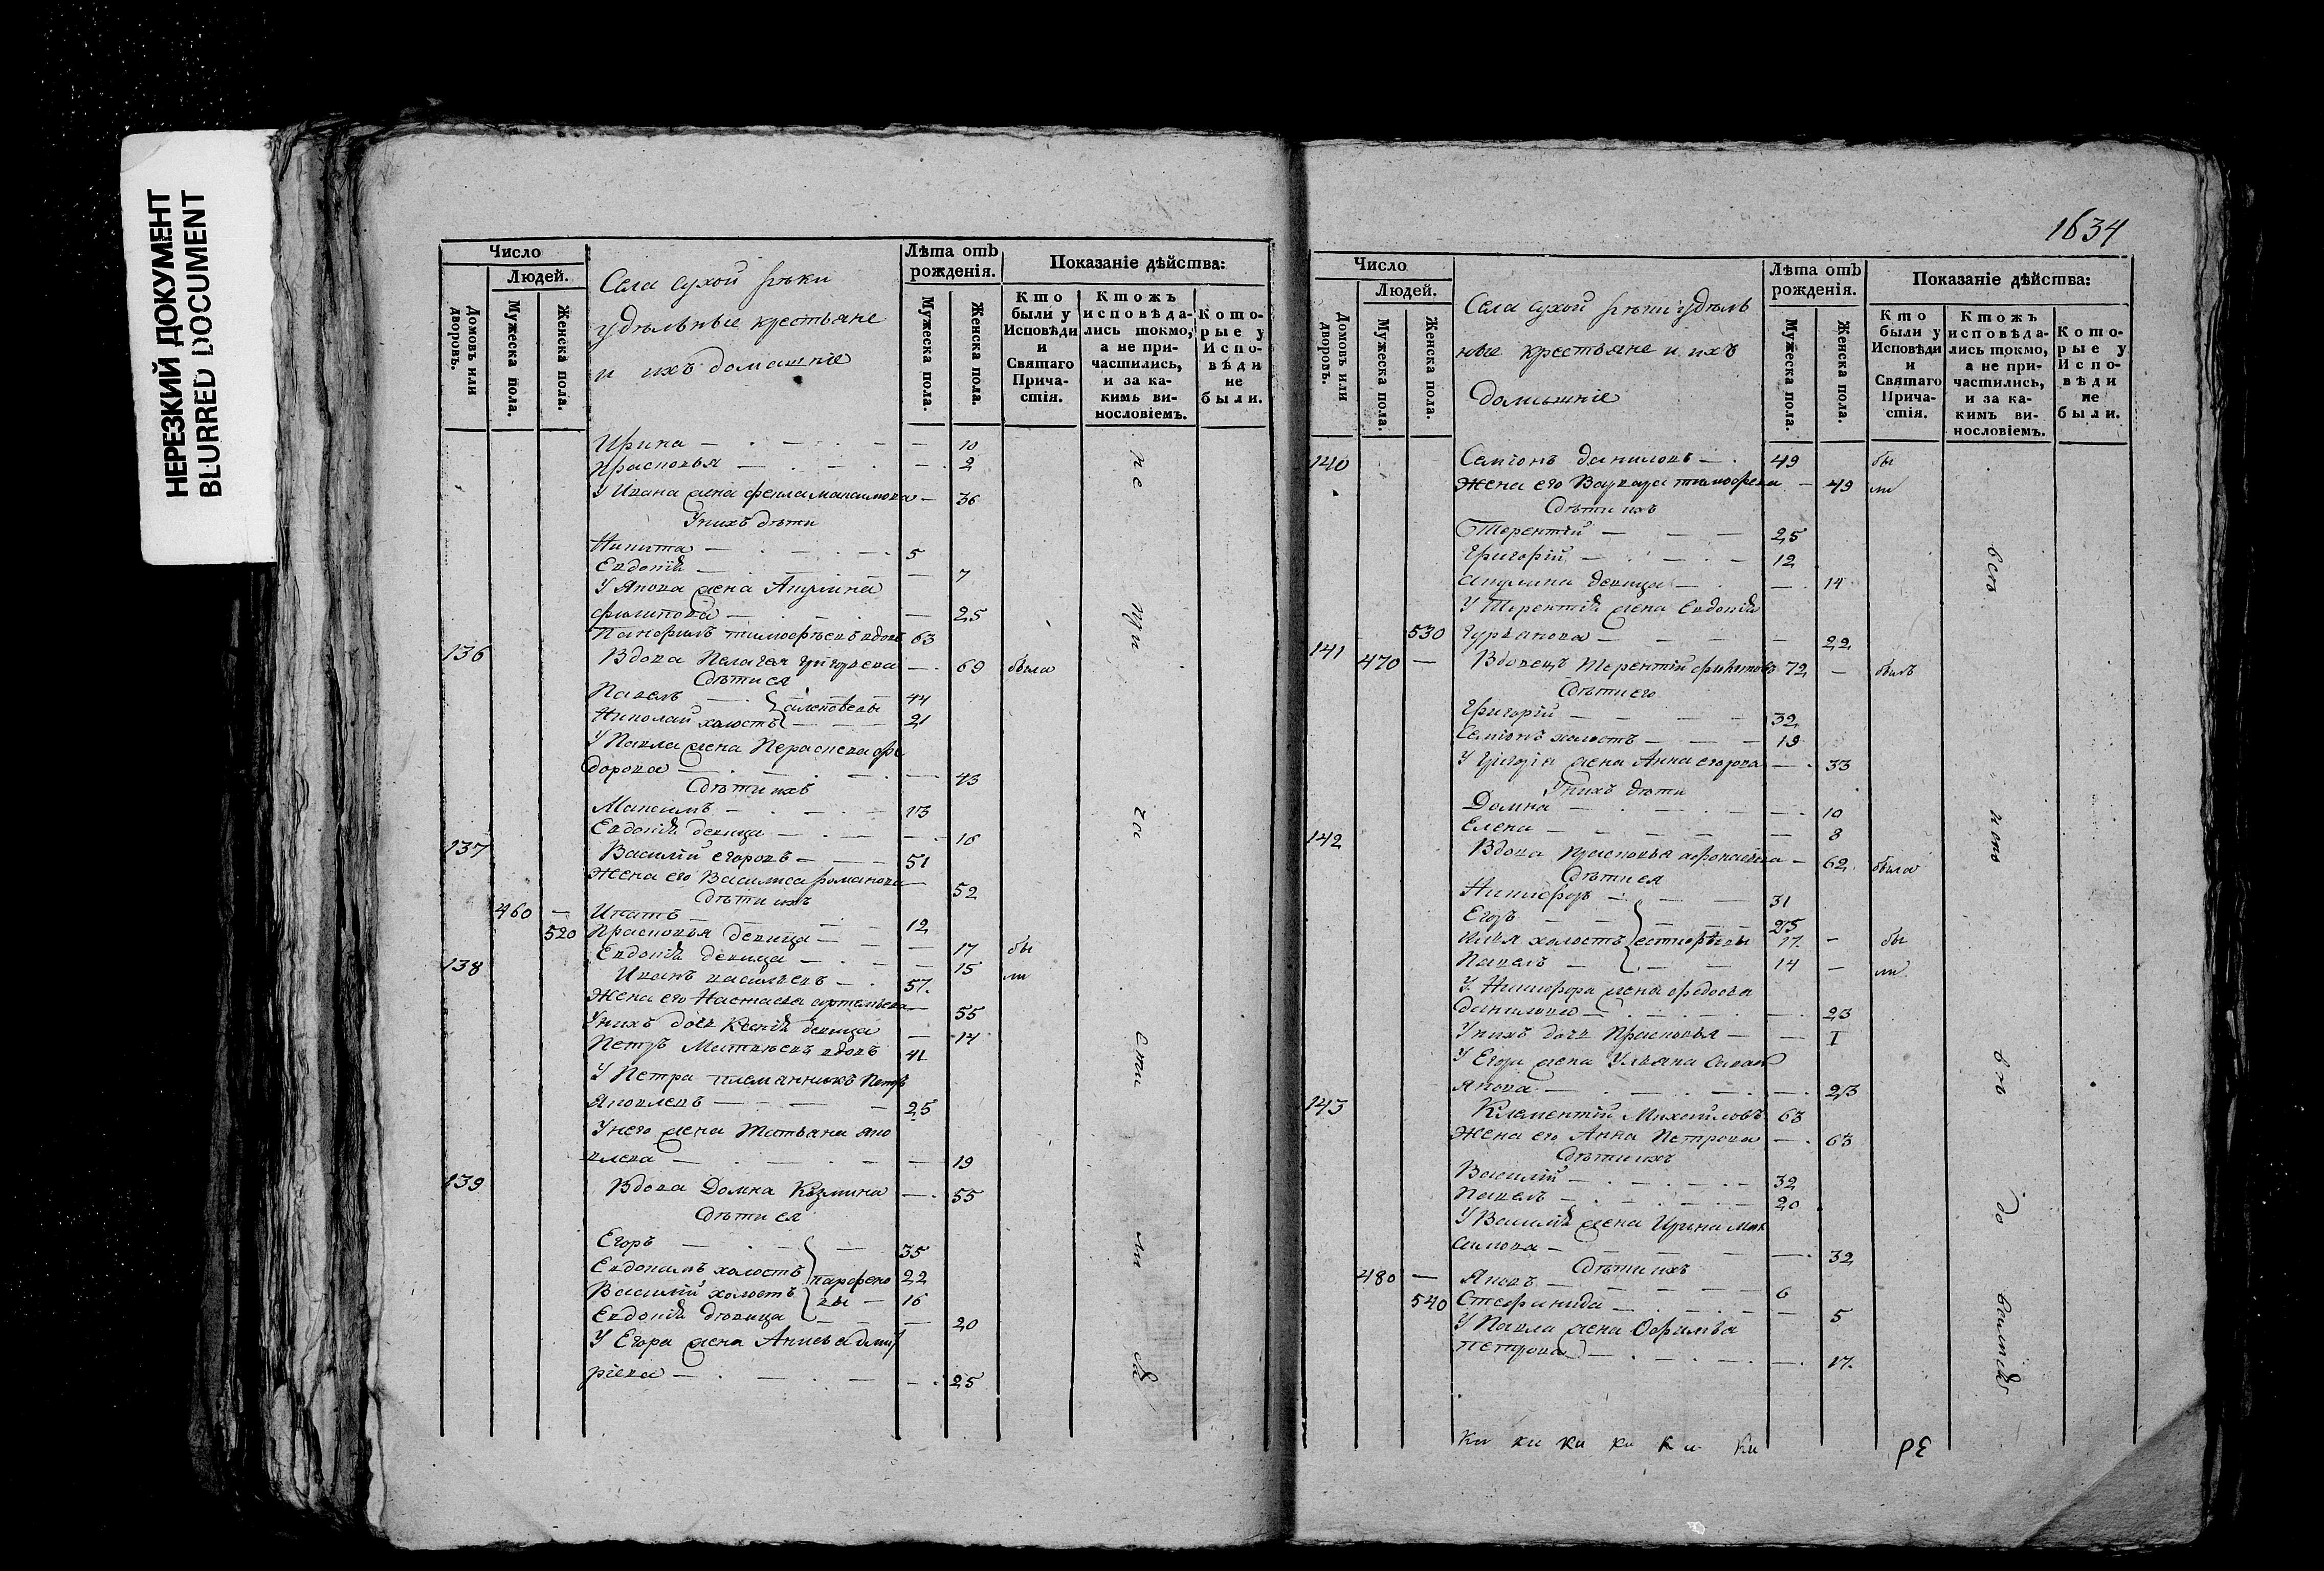 НЕРЕЗКИЙ ДОКУМЕНТ
BLURRED DOCUMENT
Число
Людей.
Домовъ или дворовъ.
Мужеска пола.
Женска пола.
Села сухой рѣки
удѣльные крестьяне
и ихъ домашніе
Лѣта отъ рожденія.
Мужеска пола.
Женска пола.
Показаніе дѣйства:
Кто были у Исповѣди и Святаго Прича-стія.
Ктожъ исповѣда-лись токмо, а не при-частились, и за ка-кимъ ви-нословіемъ.
Кото-рые у Испо-вѣди не были.
Ирина — 10
Прасковья — 2
У Ивана жена Фекла Максимова — 36
У нихъ дѣти
Никита — 5
Евдокія — 7
У Якова жена Акулина
Филипова — 25
Панфилъ тимофѣевъ вдовъ 63
136 Вдова Пелагея григорьева — 69 была
Дѣти ея
Павелъ — 44
Николай холостъ — 21
У Павла жена Параскева Фе
дорова — 43
Дѣти ихъ
Максимъ — 13
Евдокія девица — 16
137 Василій егоровъ — 51
Жена его Василиса романова — 52
Дѣти ихъ
460 — Игнатъ — 12
520 Прасковья девица — 17 бы
Евдокія девица — 15 ли
138 Иванъ васильевъ — 57.
Жена его Настасья артемьева — 55
У нихъ дочь Ксенія девица — 14
Петръ Матвѣевъ вдовъ 41
У Петра племянникъ Петръ
Яковлевъ — 25
У него жена Татьяна яко
влева — 19
139 Вдова Домна Козмина — 55
Дѣти ея
Егоръ — 35
Евдокимъ холостъ парфено 22
Василій холостъ вы — 16
Евдокія дѣвица — 20
У Егора жена Анисья дмит
ріева — 25
не при ча сти ли ся
1634
Число
Людей.
Домовъ или дворовъ.
Мужеска пола.
Женска пола.
Села сухой рѣки удѣль
ные крестьяне и ихъ
домашніе
Лѣта отъ рожденія.
Мужеска пола.
Женска пола.
Показаніе дѣйства:
Кто были у Исповѣди и Святаго Прича-стія.
Ктожъ исповѣда-лись токмо, а не при-частились, и за ка-кимъ ви-нословіемъ.
Кото-рые у Испо-вѣди не были.
140 Семіонъ даниловъ — 49 бы
Жена его Варвара тимофеева — 49 ли
Дѣти ихъ
Терентій — 25
Григорій — 12
акулина девица — 14
У Терентія жена Евдокія
530 Гурьянова — 22
141 470 — Вдовецъ Терентій Филиповъ 72 — былъ
Дѣти его
Григорій — 32
Семіонъ холостъ — 19
У Григорія жена Анна егорова — 33
У нихъ дѣти
Домна — 10
Елена — 8
142 Вдова Прасковья афонасьева — 62 была
Дѣти ея
Никифоръ — 31
Егоръ — 25
Илья холостъ 17. — бы
Павелъ — 14 — ли
У Никифора жена Федосья
данилова — 23
У нихъ дочь Прасковья — I
У Егора жена Ульяна
23
143 Клементій Михайловъ 63
Жена его Анна Петрова — 63
Дѣти ихъ
Василій — 32
Павелъ — 20
У Василья жена Ирина Мак
симова — 32
Дѣти ихъ
480 — Яковъ — 6
540 Стефанида — 5
У Павла жена Офимья
петрова — 17.
ки ки ки ки ки ки